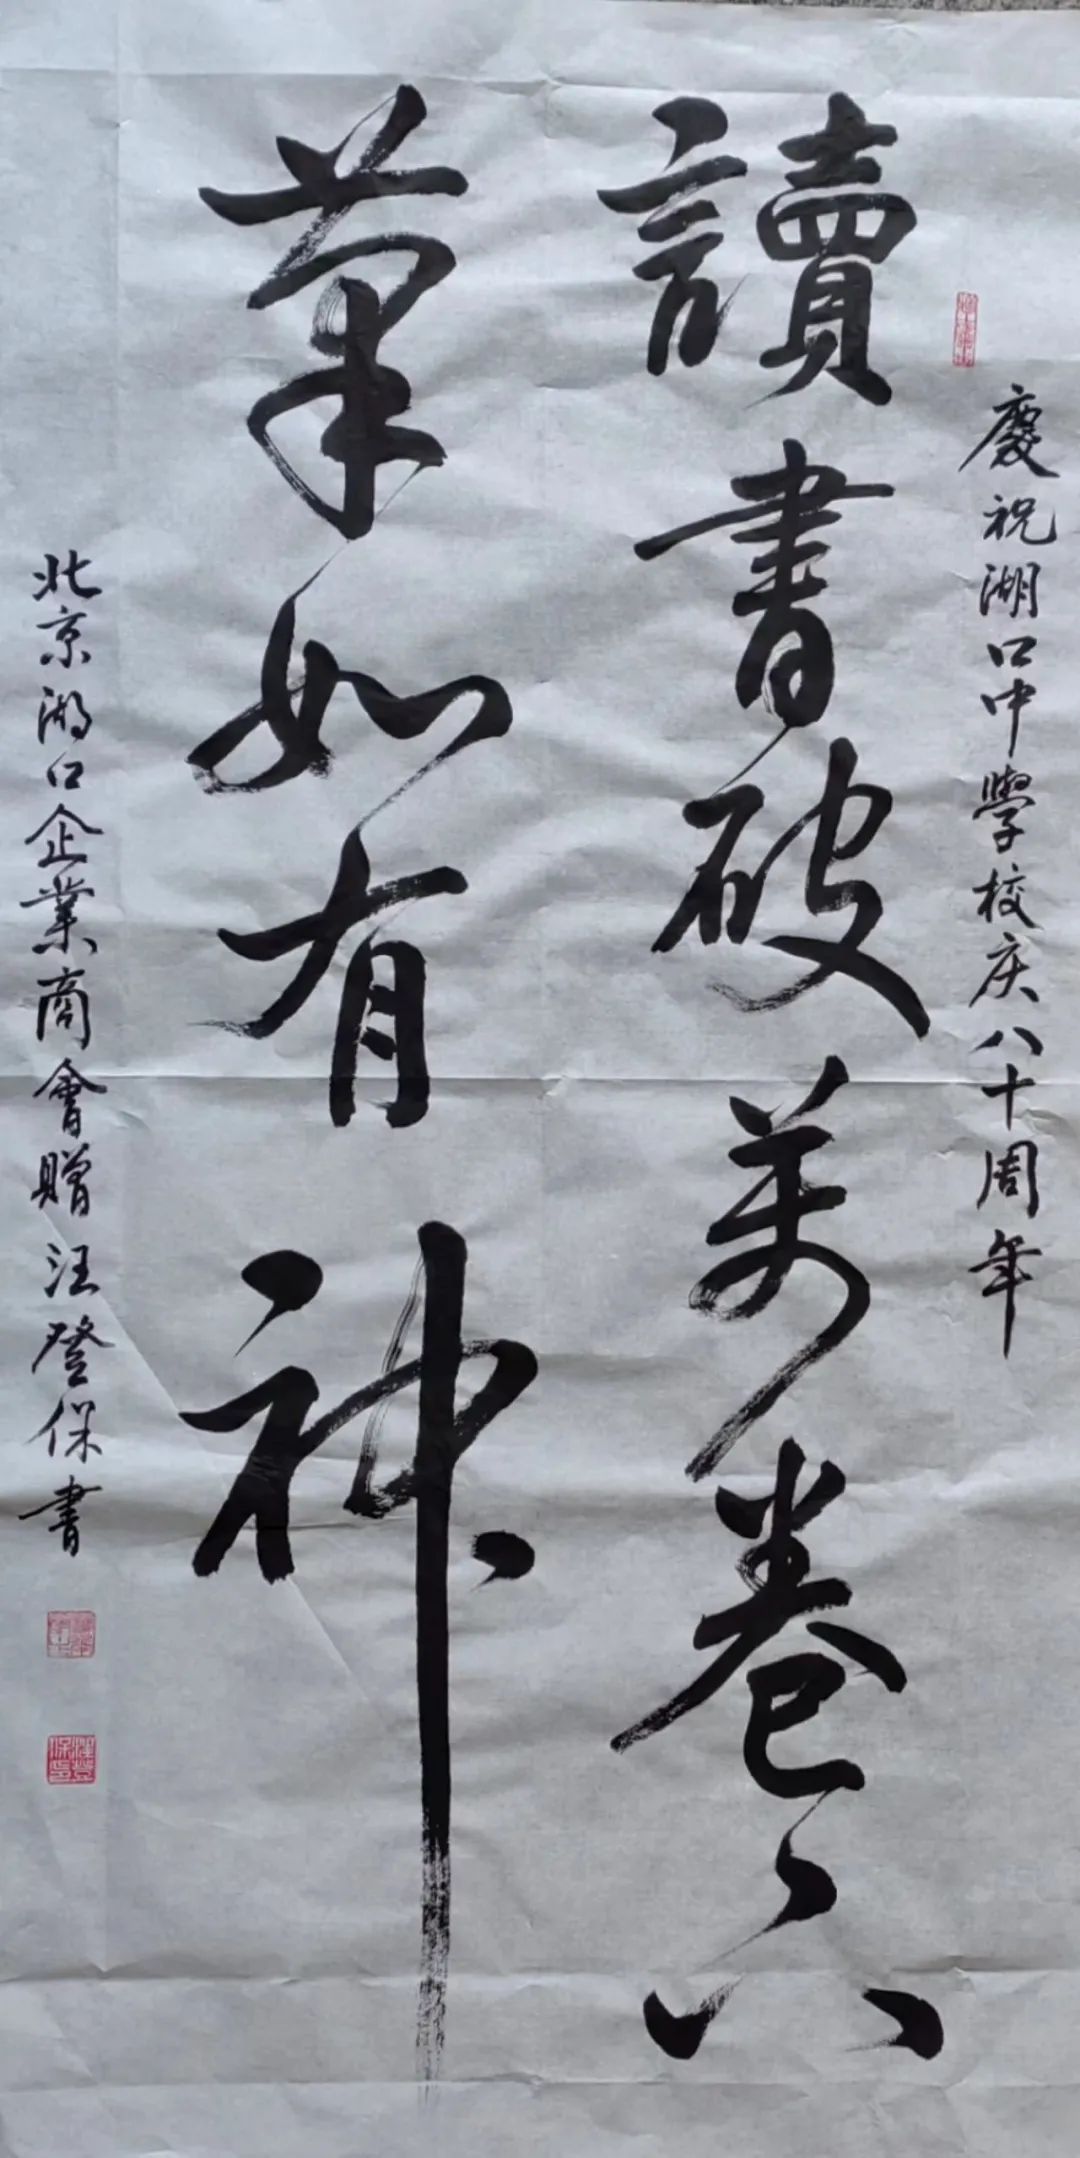 慶祝湖口中學校庆八十周年
讀書破萬卷下
筆如有神
北京湖口企業商會贈汪登保書
汪登保印